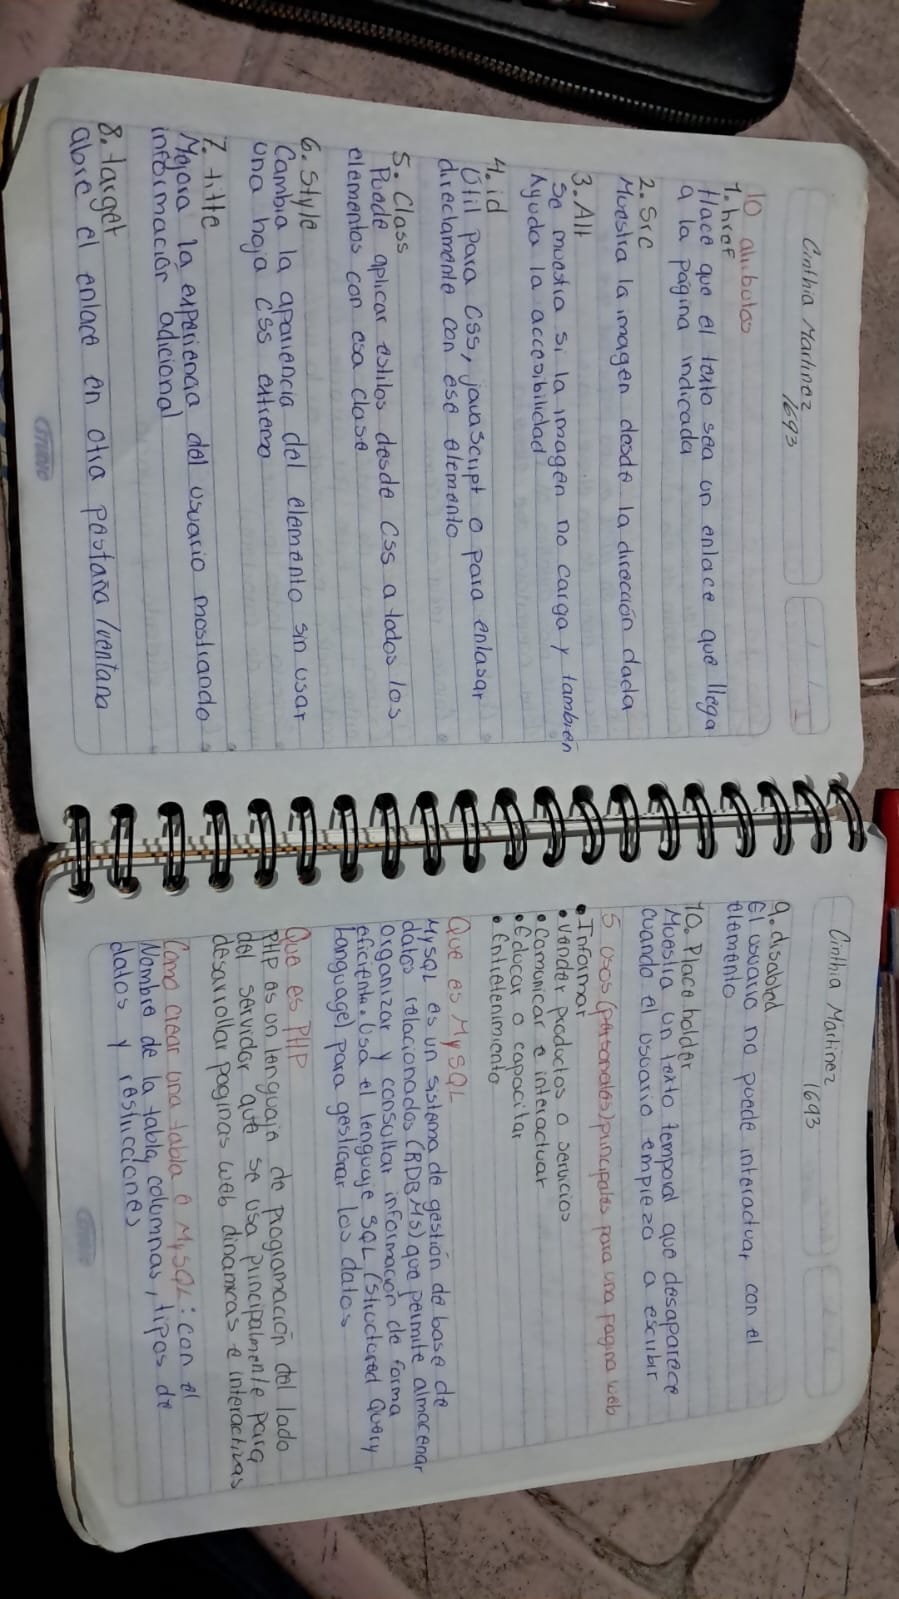 Cinthia Martinez
1693
10 atributos
1. href
Hace que el texto sea un enlace que llega
a la página indicada
2. Src
Muestra la imagen desde la dirección dada
3. Alt
Se muestra si la imagen no carga y también
Ayuda la accesibilidad
4. id
Útil para CSS, javascript o para enlasar
directamente con ese elemento
5. Class
Puede aplicar estilos desde CSS a todos los
elementos con esa clase
6. Style
Cambia la apariencia del elemento sin usar
una hoja CSS externo
7. title
Mejora la experiencia del usuario mostrando
información adicional
8. target
abre el enlace en otra pestaña/ventana
Cinthia Martinez
1693
9. disabled
El usuario no puede interactuar con el
elemento
10. Place holder
Muestra un texto temporal que desaparece
cuando el usuario empieza a escribir
5 usos (personales) principales para una pagina web
• Informar
• Vender productos o servicios
• Comunicar e interactuar
• Educar o capacitar
• Entretenimiento
Que es MySQL
MySQL es un sistema de gestión de base de
datos relacionados (RDBMS) que permite almacenar
organizar y consultar información de forma
eficiente. Usa el lenguaje SQL (Structured Query
Language) para gestionar los datos
Que es PHP
PHP es un lenguaje de programación del lado
del servidor que se usa principalmente para
desarrollar paginas web dinamicas e interactivas
Como crear una tabla e MySQL: con el
Nombre de la tabla, columnas, tipos de
datos y restricciones